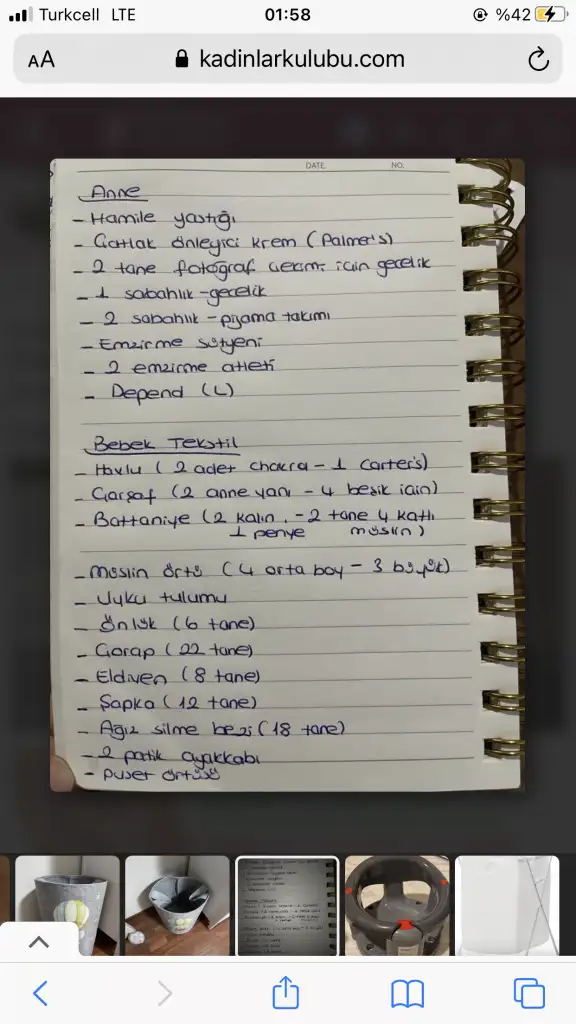 Turkcell LTE 01:58 %42
AA kadinlarkulubu.com
DATE NO.
Anne
- Hamile yastığı
- Çatlak önleyici krem (Palmer's)
- 2 tane fotoğraf çekimi için gecelik
- 1 sabahlık-gecelik
- 2 sabahlık-pijama takımı
- Emzirme sütyeni
- 2 emzirme atleti
- Depend (L)
Bebek Tekstil
- Havlu (2 adet chakra - 1 Carter's)
- Çarşaf (2 anne yanı - 4 beşik için)
- Battaniye (2 kalın, - 2 tane 4 katlı
1 penye müslin)
- Müslin örtü (4 orta boy - 3 büyük)
- Uyku tulumu
- Önlük (6 tane)
- Çorap (22 tane)
- Eldiven (8 tane)
- Şapka (12 tane)
- Ağız silme bezi (18 tane)
- 2 patik ayakkabı
- Puset örtüsü